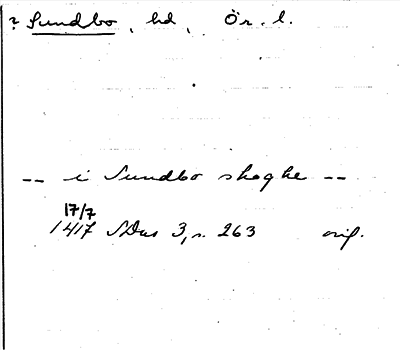 ? Sundbo, hd, Ör. l.
-- i Sundbo skoghe --
17/7
1417 SDns 3, s. 263 orig.